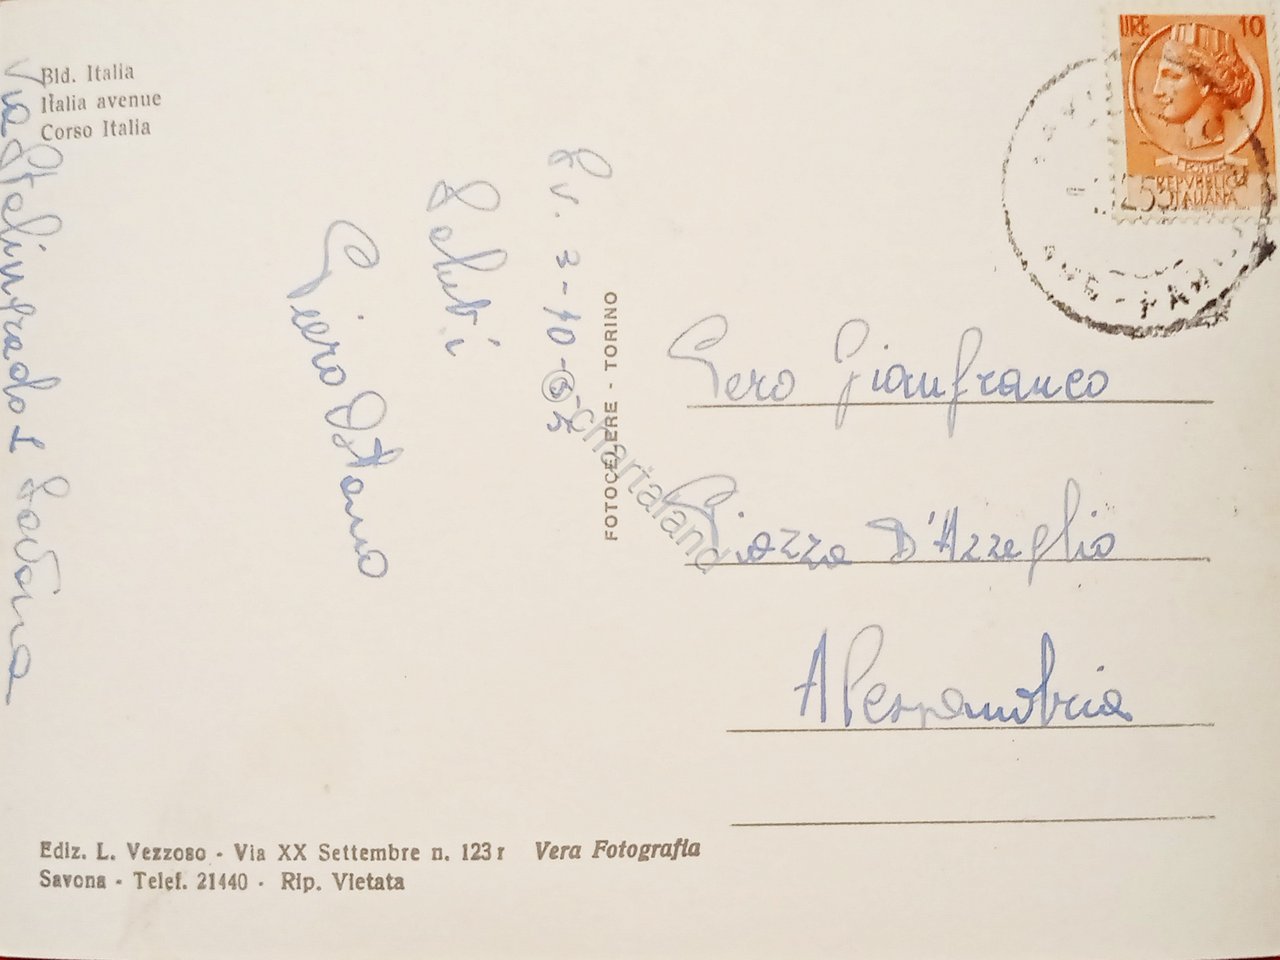 Bld. Italia
Italia avenue
Corso Italia
Via Stalingrado 1 Savona
Sv. 3-10-55
Saluti
Piero
FOTOCELERE - TORINO
chartaland
LIRE 10
REPVBBLICA
ITALIANA
Pero Gianfranco
Piazza D'Azzeglio
Alessandria
Ediz. L. Vezzoso - Via XX Settembre n. 123 r Vera Fotografia
Savona - Telef. 21440 - Rip. Vietata